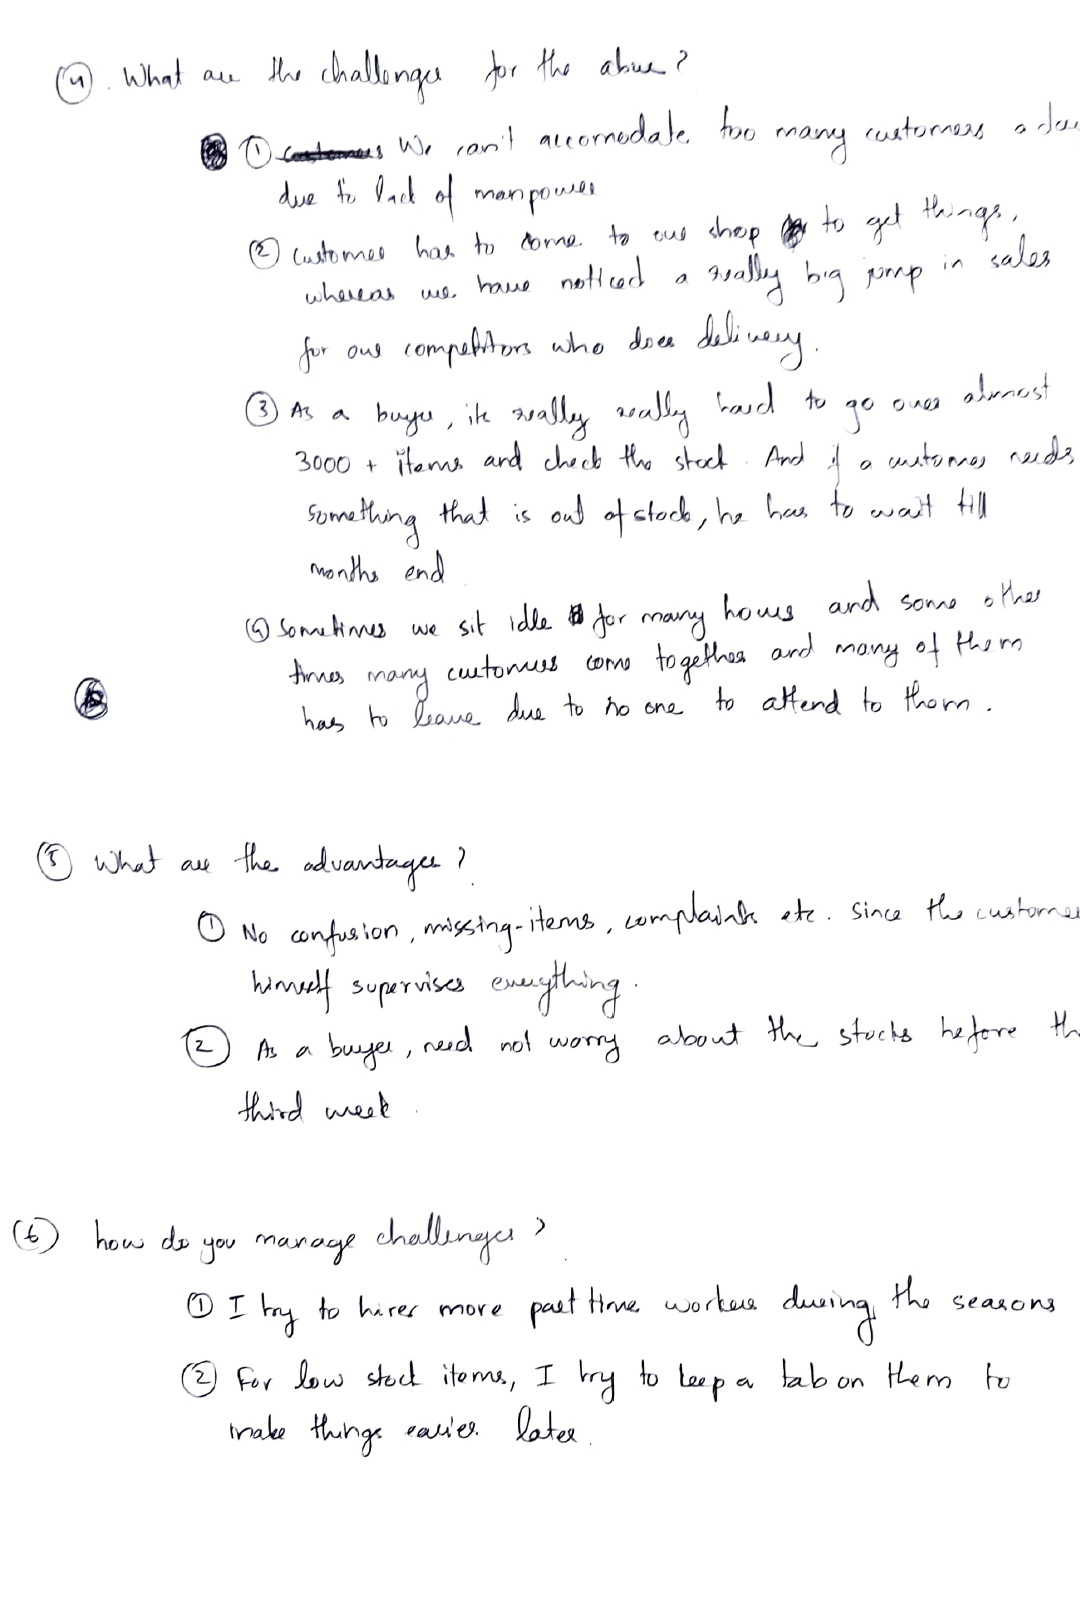 (4). What are the challenges for the above?
① We can't accomodate too many customers a day
due to lack of manpower
② Customer has to come to our shop to get things,
whereas we have noticed a really big jump in sales
for our competitors who does delivery.
③ As a buyer, its really really hard to go over almost
3000 + items and check the stock. And if a customer needs
something that is out of stock, he has to wait till
months end
④ Sometimes we sit idle for many hours and some other
times many customers come together and many of them
has to leave due to no one to attend to them.
⑤ What are the advantages?
① No confusion, missing-items, complaints etc. since the customer
himself supervises everything.
② As a buyer, need not worry about the stocks before the
third week.
(6) how do you manage challenges?
① I try to hirer more part time workers during the seasons
② For low stock items, I try to keep a tab on them to
make things easier later.